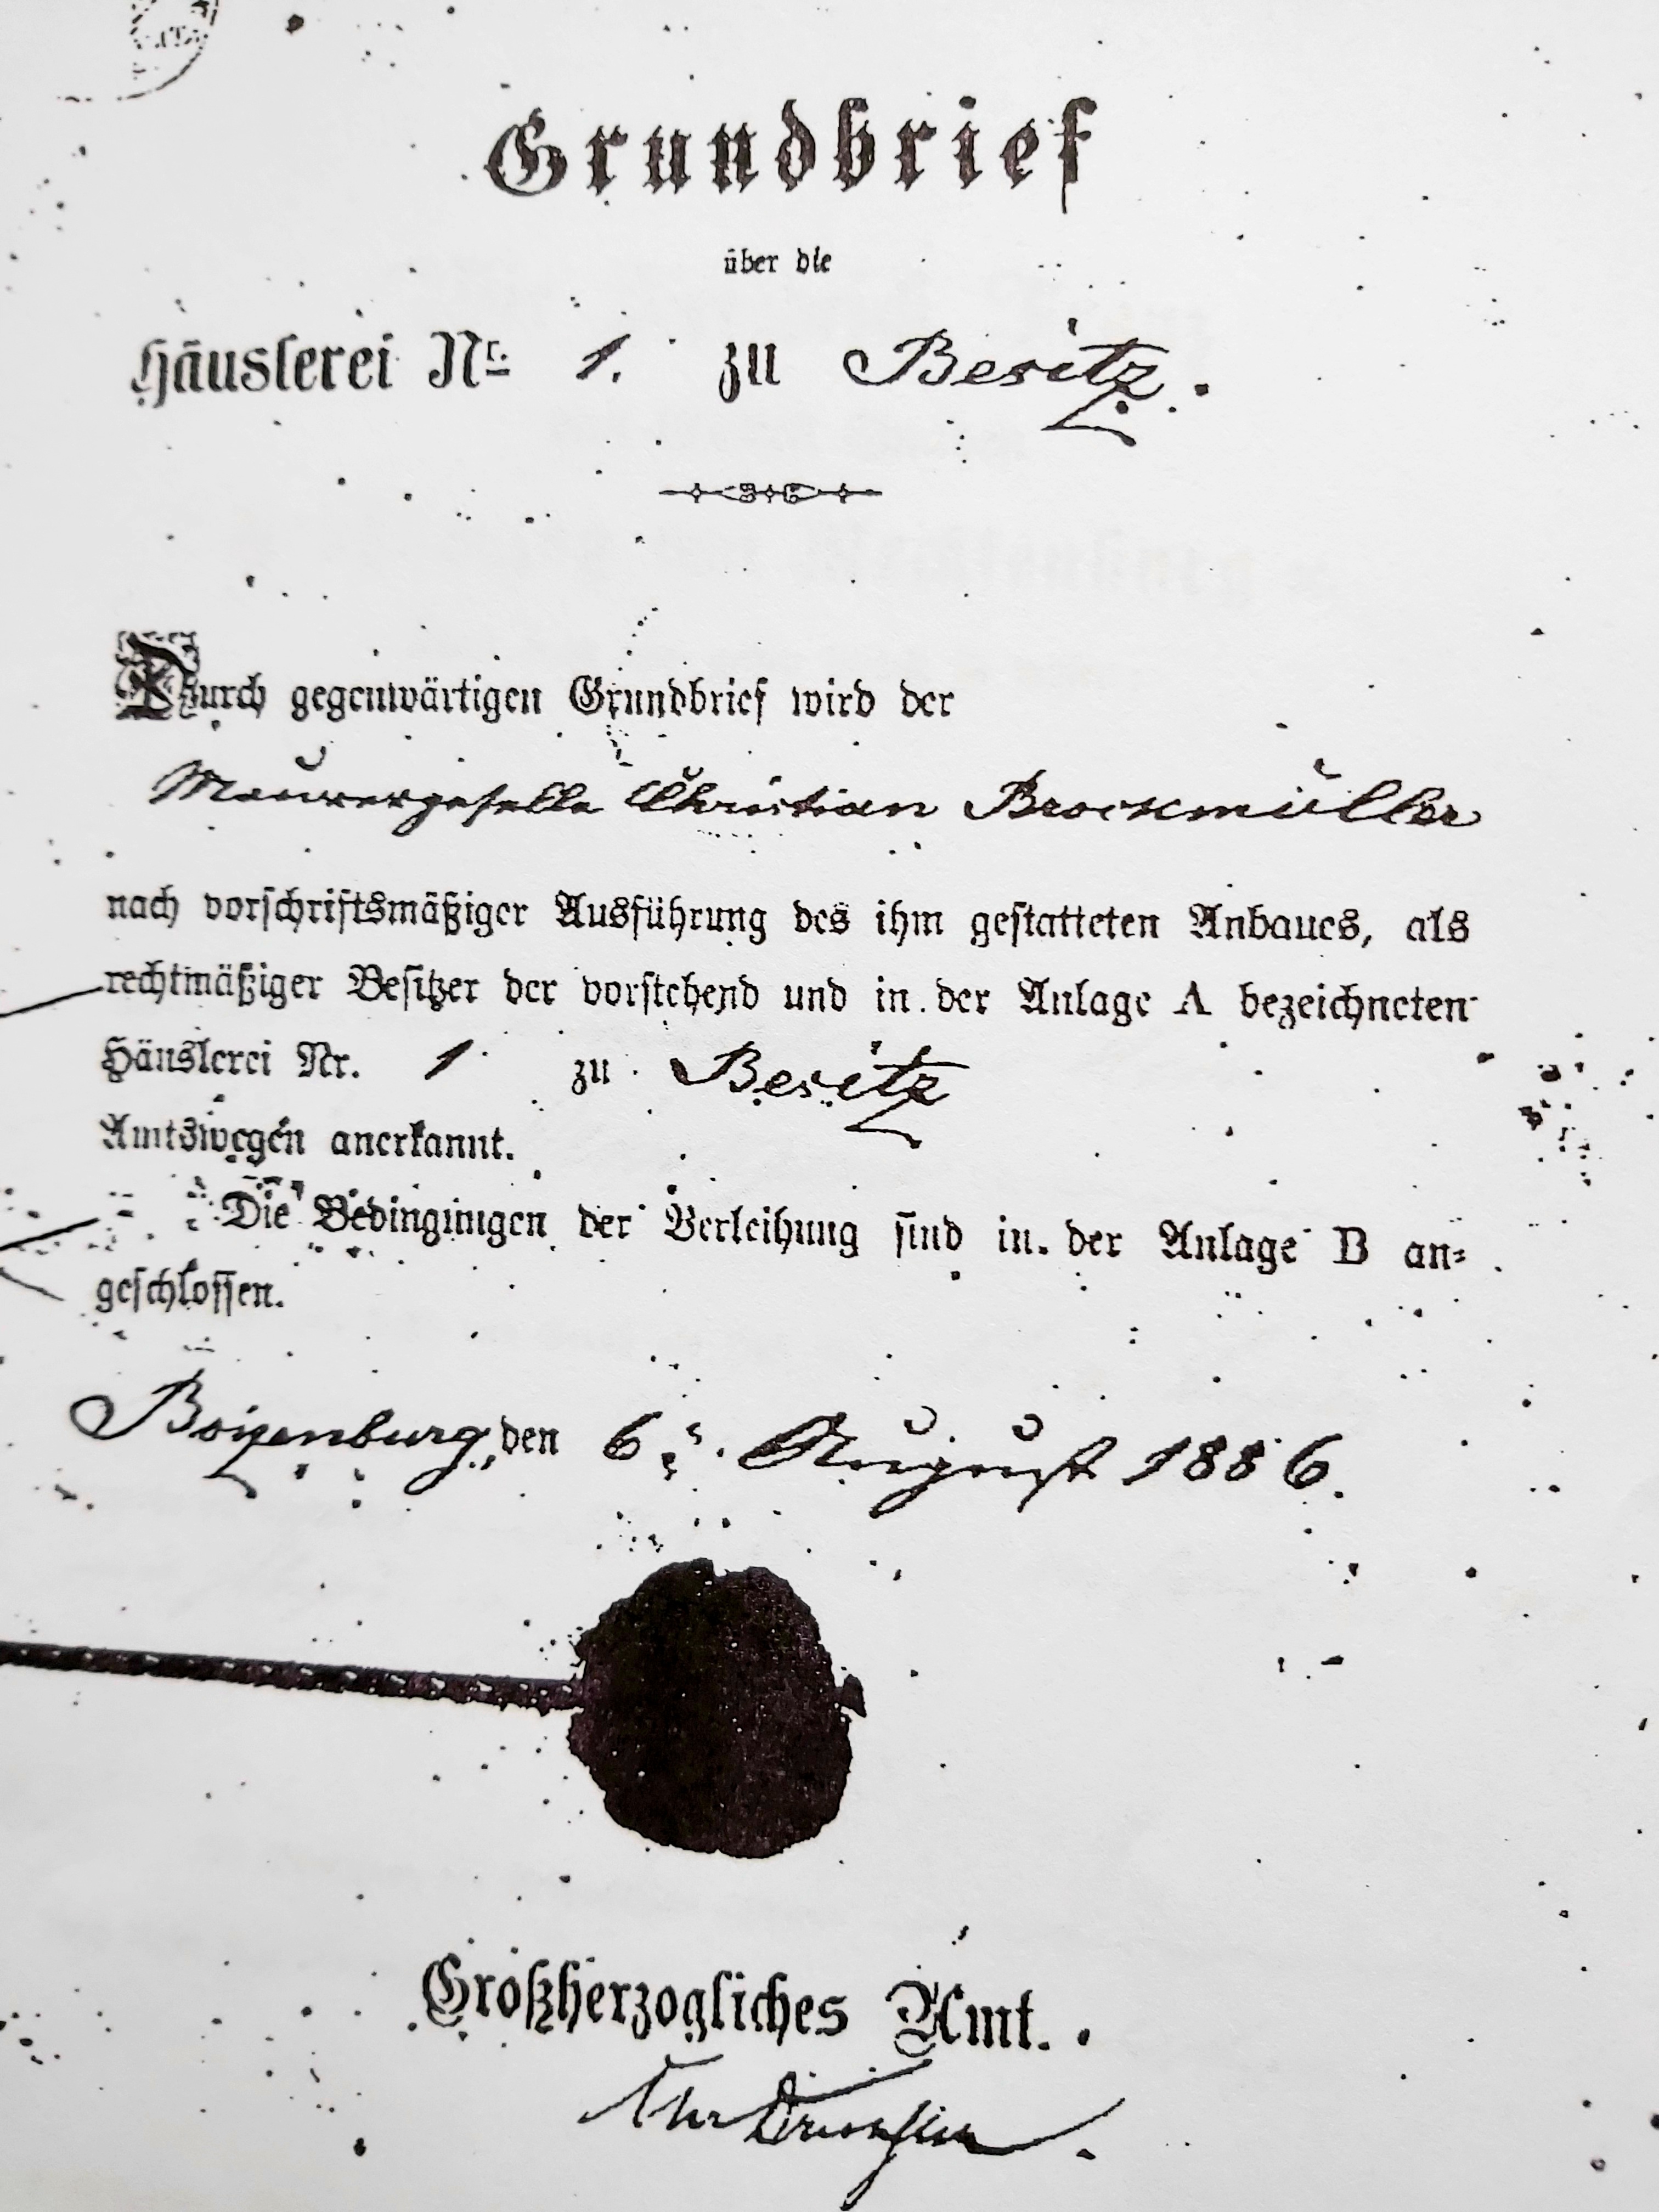 Grundbrief
über die
Häuslerei Nr. 1. zu Besitz.
Durch gegenwärtigen Grundbrief wird der
Maurergeselle Christian Brockmüller
nach vorschriftsmäßiger Ausführung des ihm gestatteten Anbaues, als
rechtmäßiger Besitzer der vorstehend und in der Anlage A bezeichneten
Häuslerei Nr. 1 zu Besitz
Amtswegen anerkannt.
Die Bedingungen der Verleihung sind in der Anlage B an=
geschlossen.
Boizenburg, den 6. August 1886.
Großherzogliches Amt.